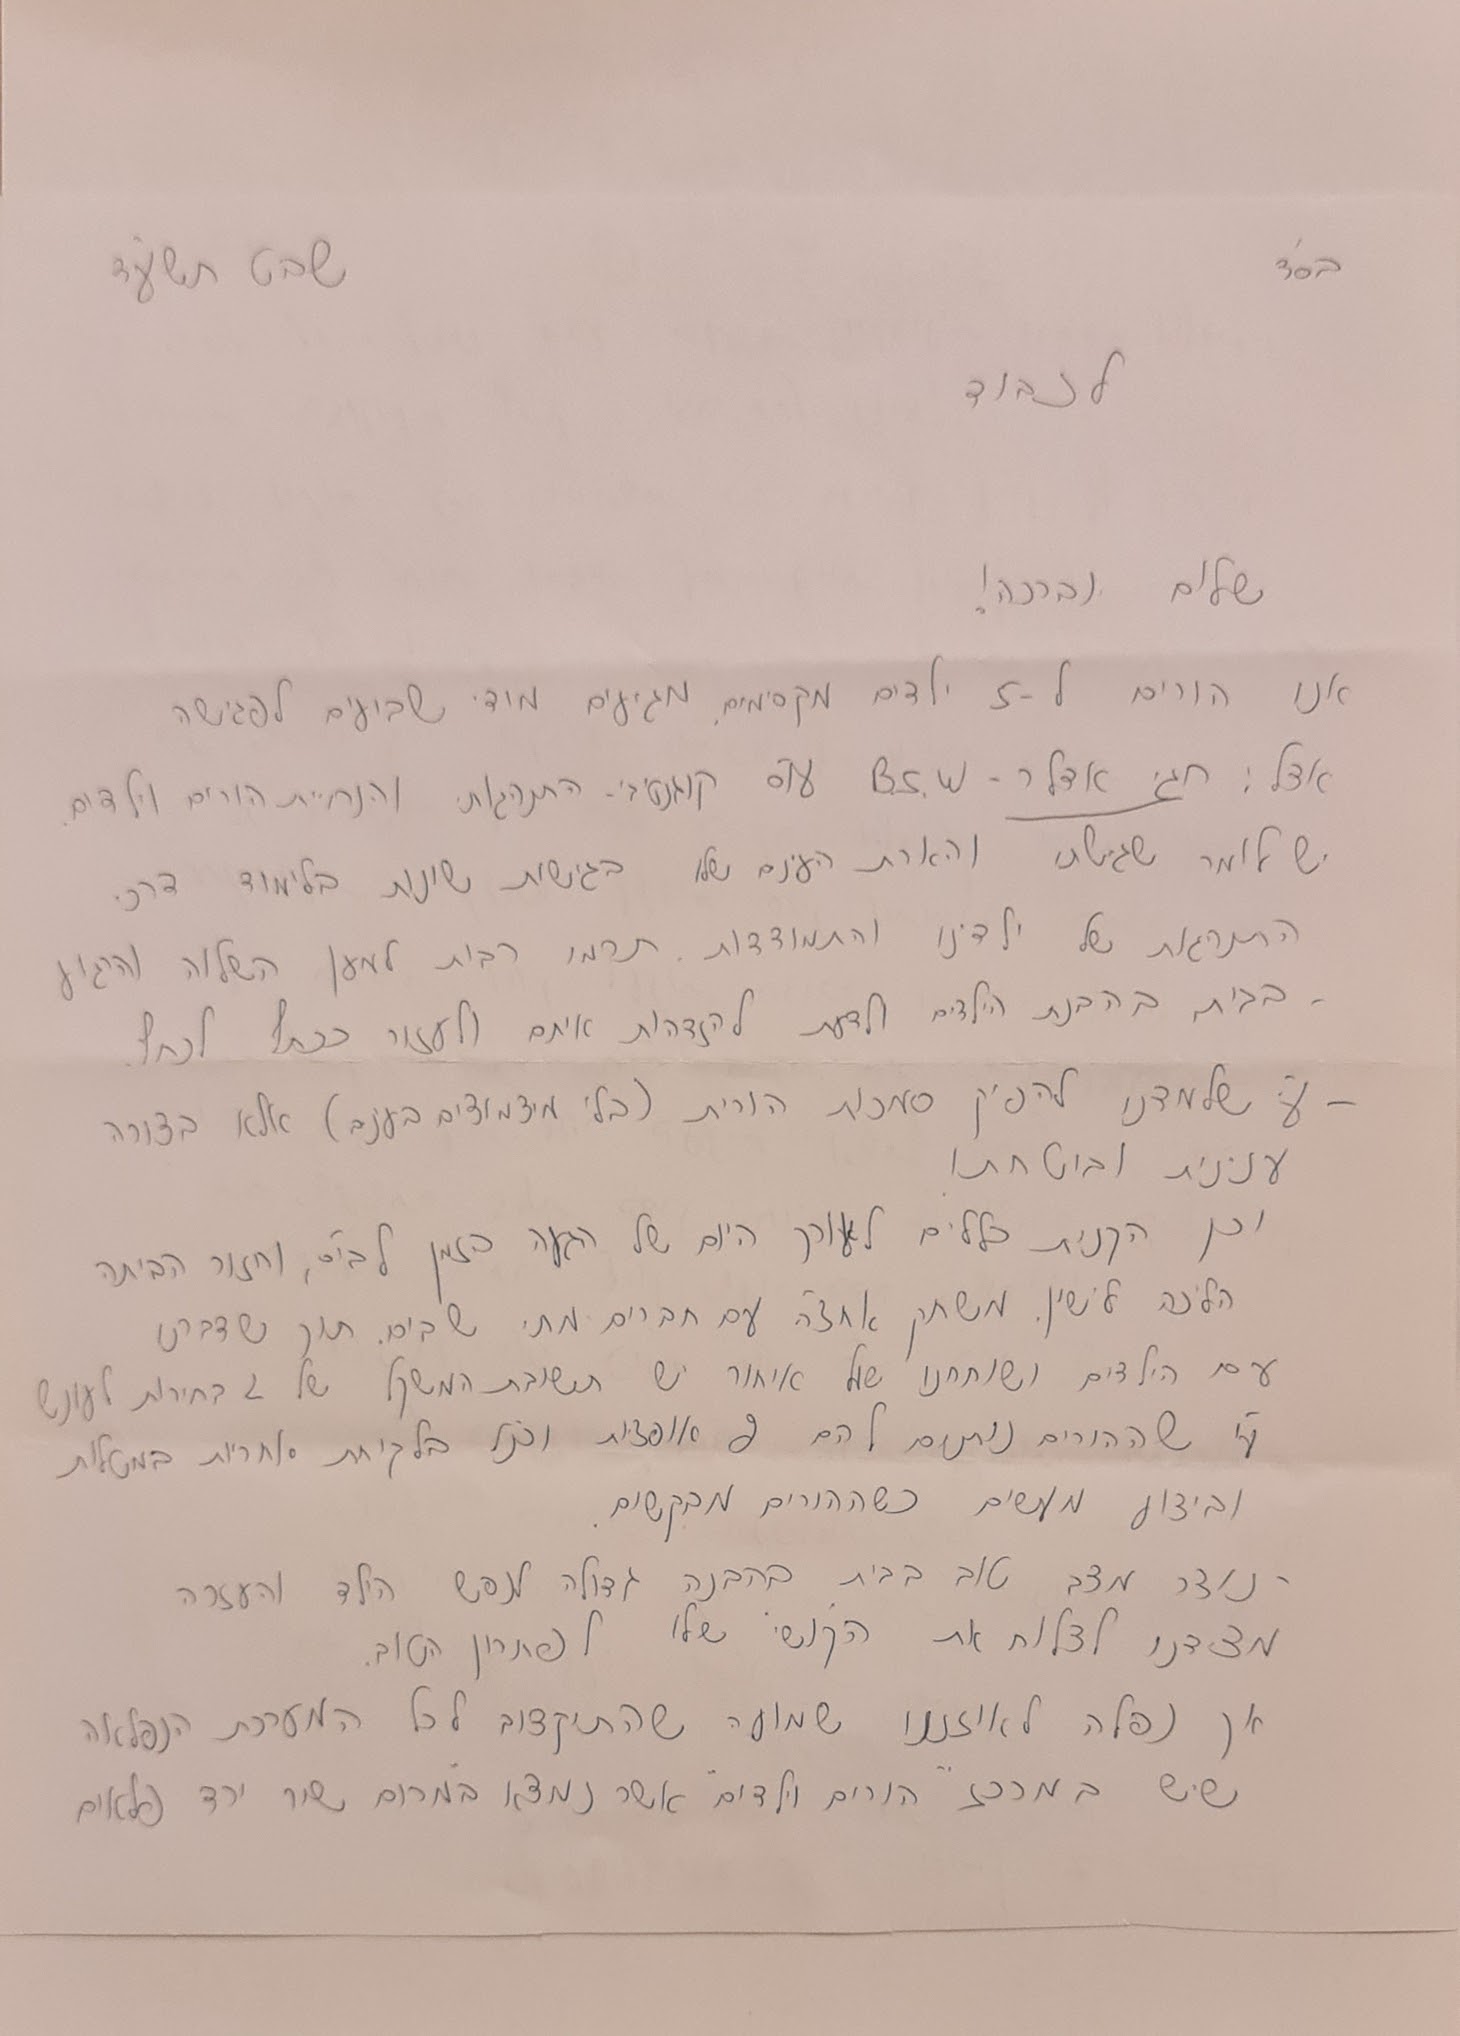 בס"ד
שבט תשע"ד
לכבוד
שלום וברכה!
אנו הורים ל-5 ילדים מקסימים, מגיעים מידי שבועים לפגישה
אצל: חגי אדלר - B.S.W עו"ס קוגנטיבי- התנהגותי והנחיית הורים וילדים.
יש לומר שגישתו והארת העינים שלו בגישות שונות בלימוד דרכי
התנהגות של ילדינו והתמודדות. תרמו רבות למען השלוה והרוגע
- בבית, בהבנת הילדים ולדעת להזדהות איתם ולעזור ככתף לכתף.
- ע"י שלמדנו להפיק סמכות הורית (בלי מיצמוצים בענים) אלא בצורה
ענינית ובוטחת!
וכן הקנית כללים לאורך היום של הגעה בזמן לבי"ס, וחזור הביתה
הליכה לישון. משחק אחה"צ עם חברים מתי שבים. תוך שדברנו
עם הילדים ושוחחנו שעל איחור יש תשובת המשקל של 2 בחירות לעונש
ע"י שההורים נותנים להם אופציות וכנ"ל בלקיחת אחריות במטלות
וביצוע מעשים כשההורים מבקשים.
- נוצר מצב טוב בבית בהבנה גדולה לנפש הילד והעזרה
מצידנו לצלוח את ה"קושי" שלו לפתרון הטוב.
אך נפלה לאוזננו שמועה שהתיקצוב לכל המערכת הנפלאה
שיש במרכז "הורים וילדים" אשר נמצא במרום שיר ירד פלאים